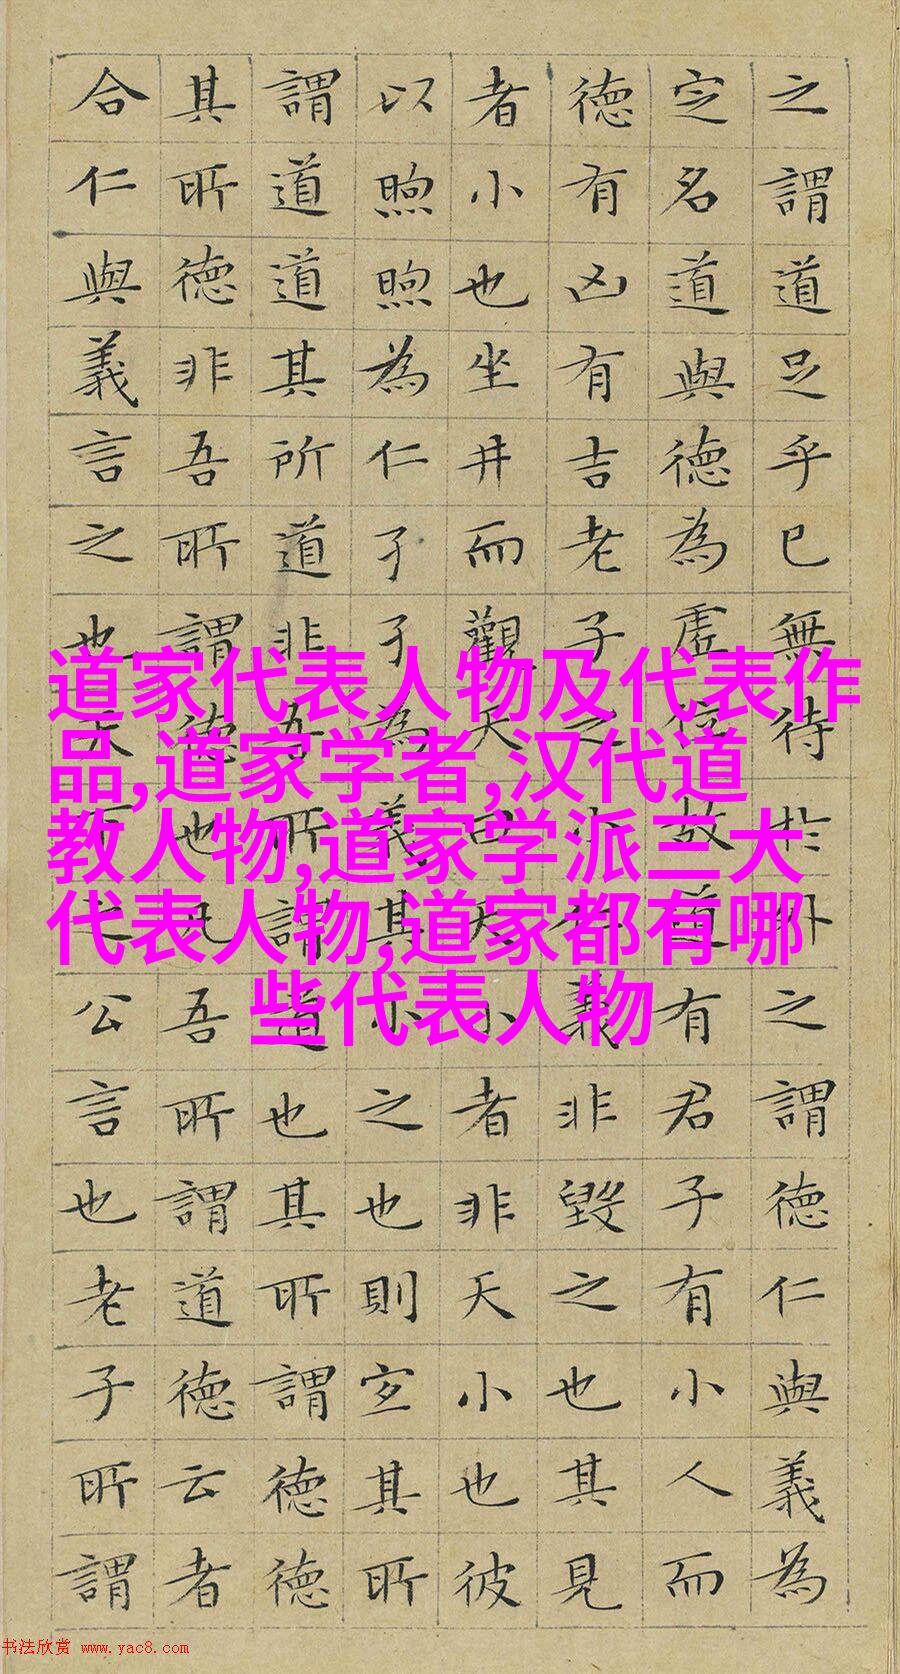 之謂道足乎已無待於外之謂德仁與義為
定名道與德為虛位故道有君子有小人而
德有凶有吉老子之小仁義非毀之也其見
者小也坐井而觀天曰天小者非天小也彼
以煦煦為仁孑孑為義其小之也則宜其所
謂道道其所道非吾所謂道也其所謂德德
其所德非吾所謂德也凡吾所謂道德云者
合仁與義言之也天下之公言也老子所謂
道家代表人物及代表作
品,道家学者,汉代道
教人物,道家学派三大
代表人物,道家都有哪
些代表人物
书法欣赏 www.yac8.com